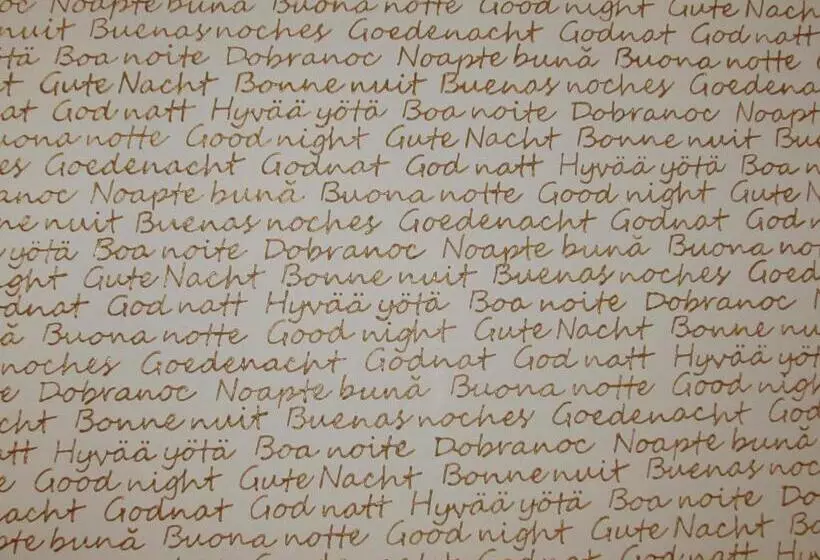 oc Noapte bună Buona notte Good night Gute Nach
nuit Buenas noches Goedenacht Godnat God natt
tä Boa noite Dobranoc Noapte bună Buona notte
t Gute Nacht Bonne nuit Buenas noches Goedena
at God natt Hyvää yötä Boa noite Dobranoc Noapt
uona notte Good night Gute Nacht Bonne nuit Bue
es Goedenacht Godnat God natt Hyvää yötä Boa n
anoc Noapte bună Buona notte Good night Gute N
ne nuit Buenas noches Goedenacht Godnat God n
yötä Boa noite Dobranoc Noapte bună Buona no
ght Gute Nacht Bonne nuit Buenas noches Goed
dnat God natt Hyvää yötä Boa noite Dobranoc N
ă Buona notte Good night Gute Nacht Bonne nu
noches Goedenacht Godnat God natt Hyvää yöt
e Dobranoc Noapte bună Buona notte Good nigh
cht Bonne nuit Buenas noches Goedenacht God
tt Hyvää yötä Boa noite Dobranoc Noapte bună
e Good night Gute Nacht Bonne nuit Buenas noc
acht Godnat God natt Hyvää yötä Boa noite Do
pte bună Buona notte Good night Gute Nacht Bo
Goedenacht Godnat God natt Hyv